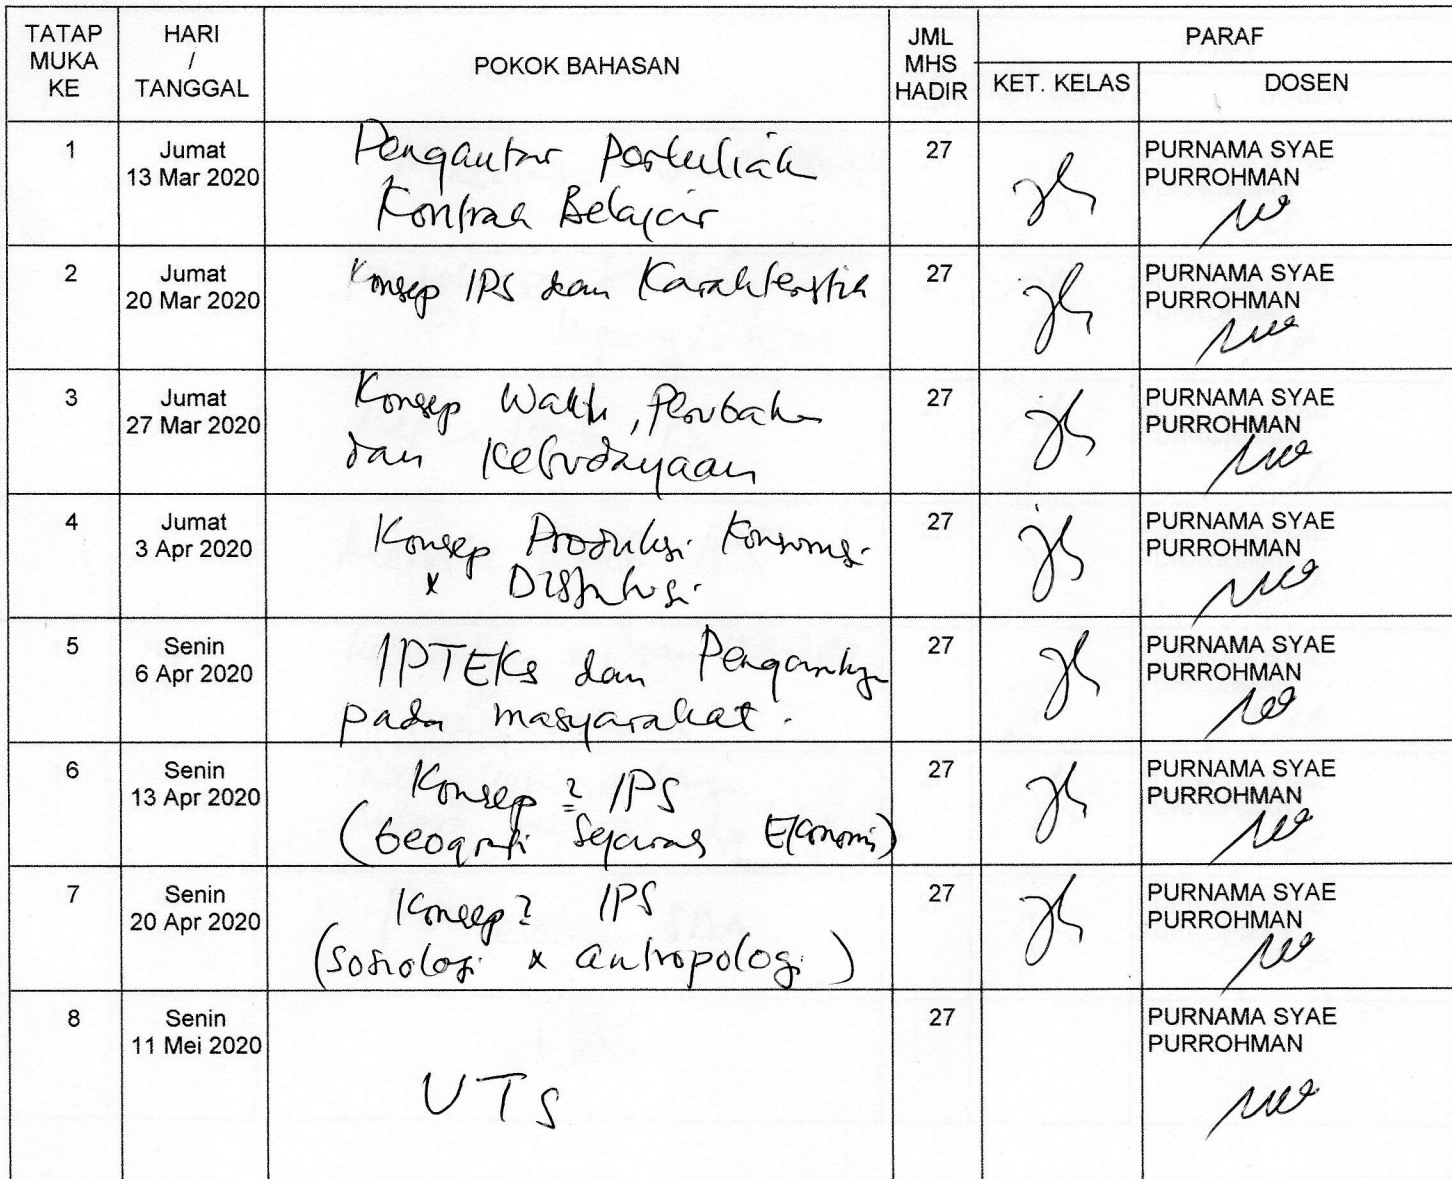 TATAP MUKA KE
HARI / TANGGAL
POKOK BAHASAN
JML MHS HADIR
PARAF
KET. KELAS
DOSEN
1
Jumat
13 Mar 2020
Pengantar Perkuliah
Kontrak Belajar
27
PURNAMA SYAE
PURROHMAN
2
Jumat
20 Mar 2020
Konsep IPS dan Karakteristik
27
PURNAMA SYAE
PURROHMAN
3
Jumat
27 Mar 2020
Konsep Waktu, Perubahan
dan Kebudayaan
27
PURNAMA SYAE
PURROHMAN
4
Jumat
3 Apr 2020
Konsep Produksi Konsumsi
& Distribusi
27
PURNAMA SYAE
PURROHMAN
5
Senin
6 Apr 2020
IPTEKs dan Pengaruhnya
pada masyarakat.
27
PURNAMA SYAE
PURROHMAN
6
Senin
13 Apr 2020
Konsep2 IPS
(Geografi Sejarah Ekonomi)
27
PURNAMA SYAE
PURROHMAN
7
Senin
20 Apr 2020
Konsep2 IPS
(Sosiologi & antropologi)
27
PURNAMA SYAE
PURROHMAN
8
Senin
11 Mei 2020
UTS
27
PURNAMA SYAE
PURROHMAN